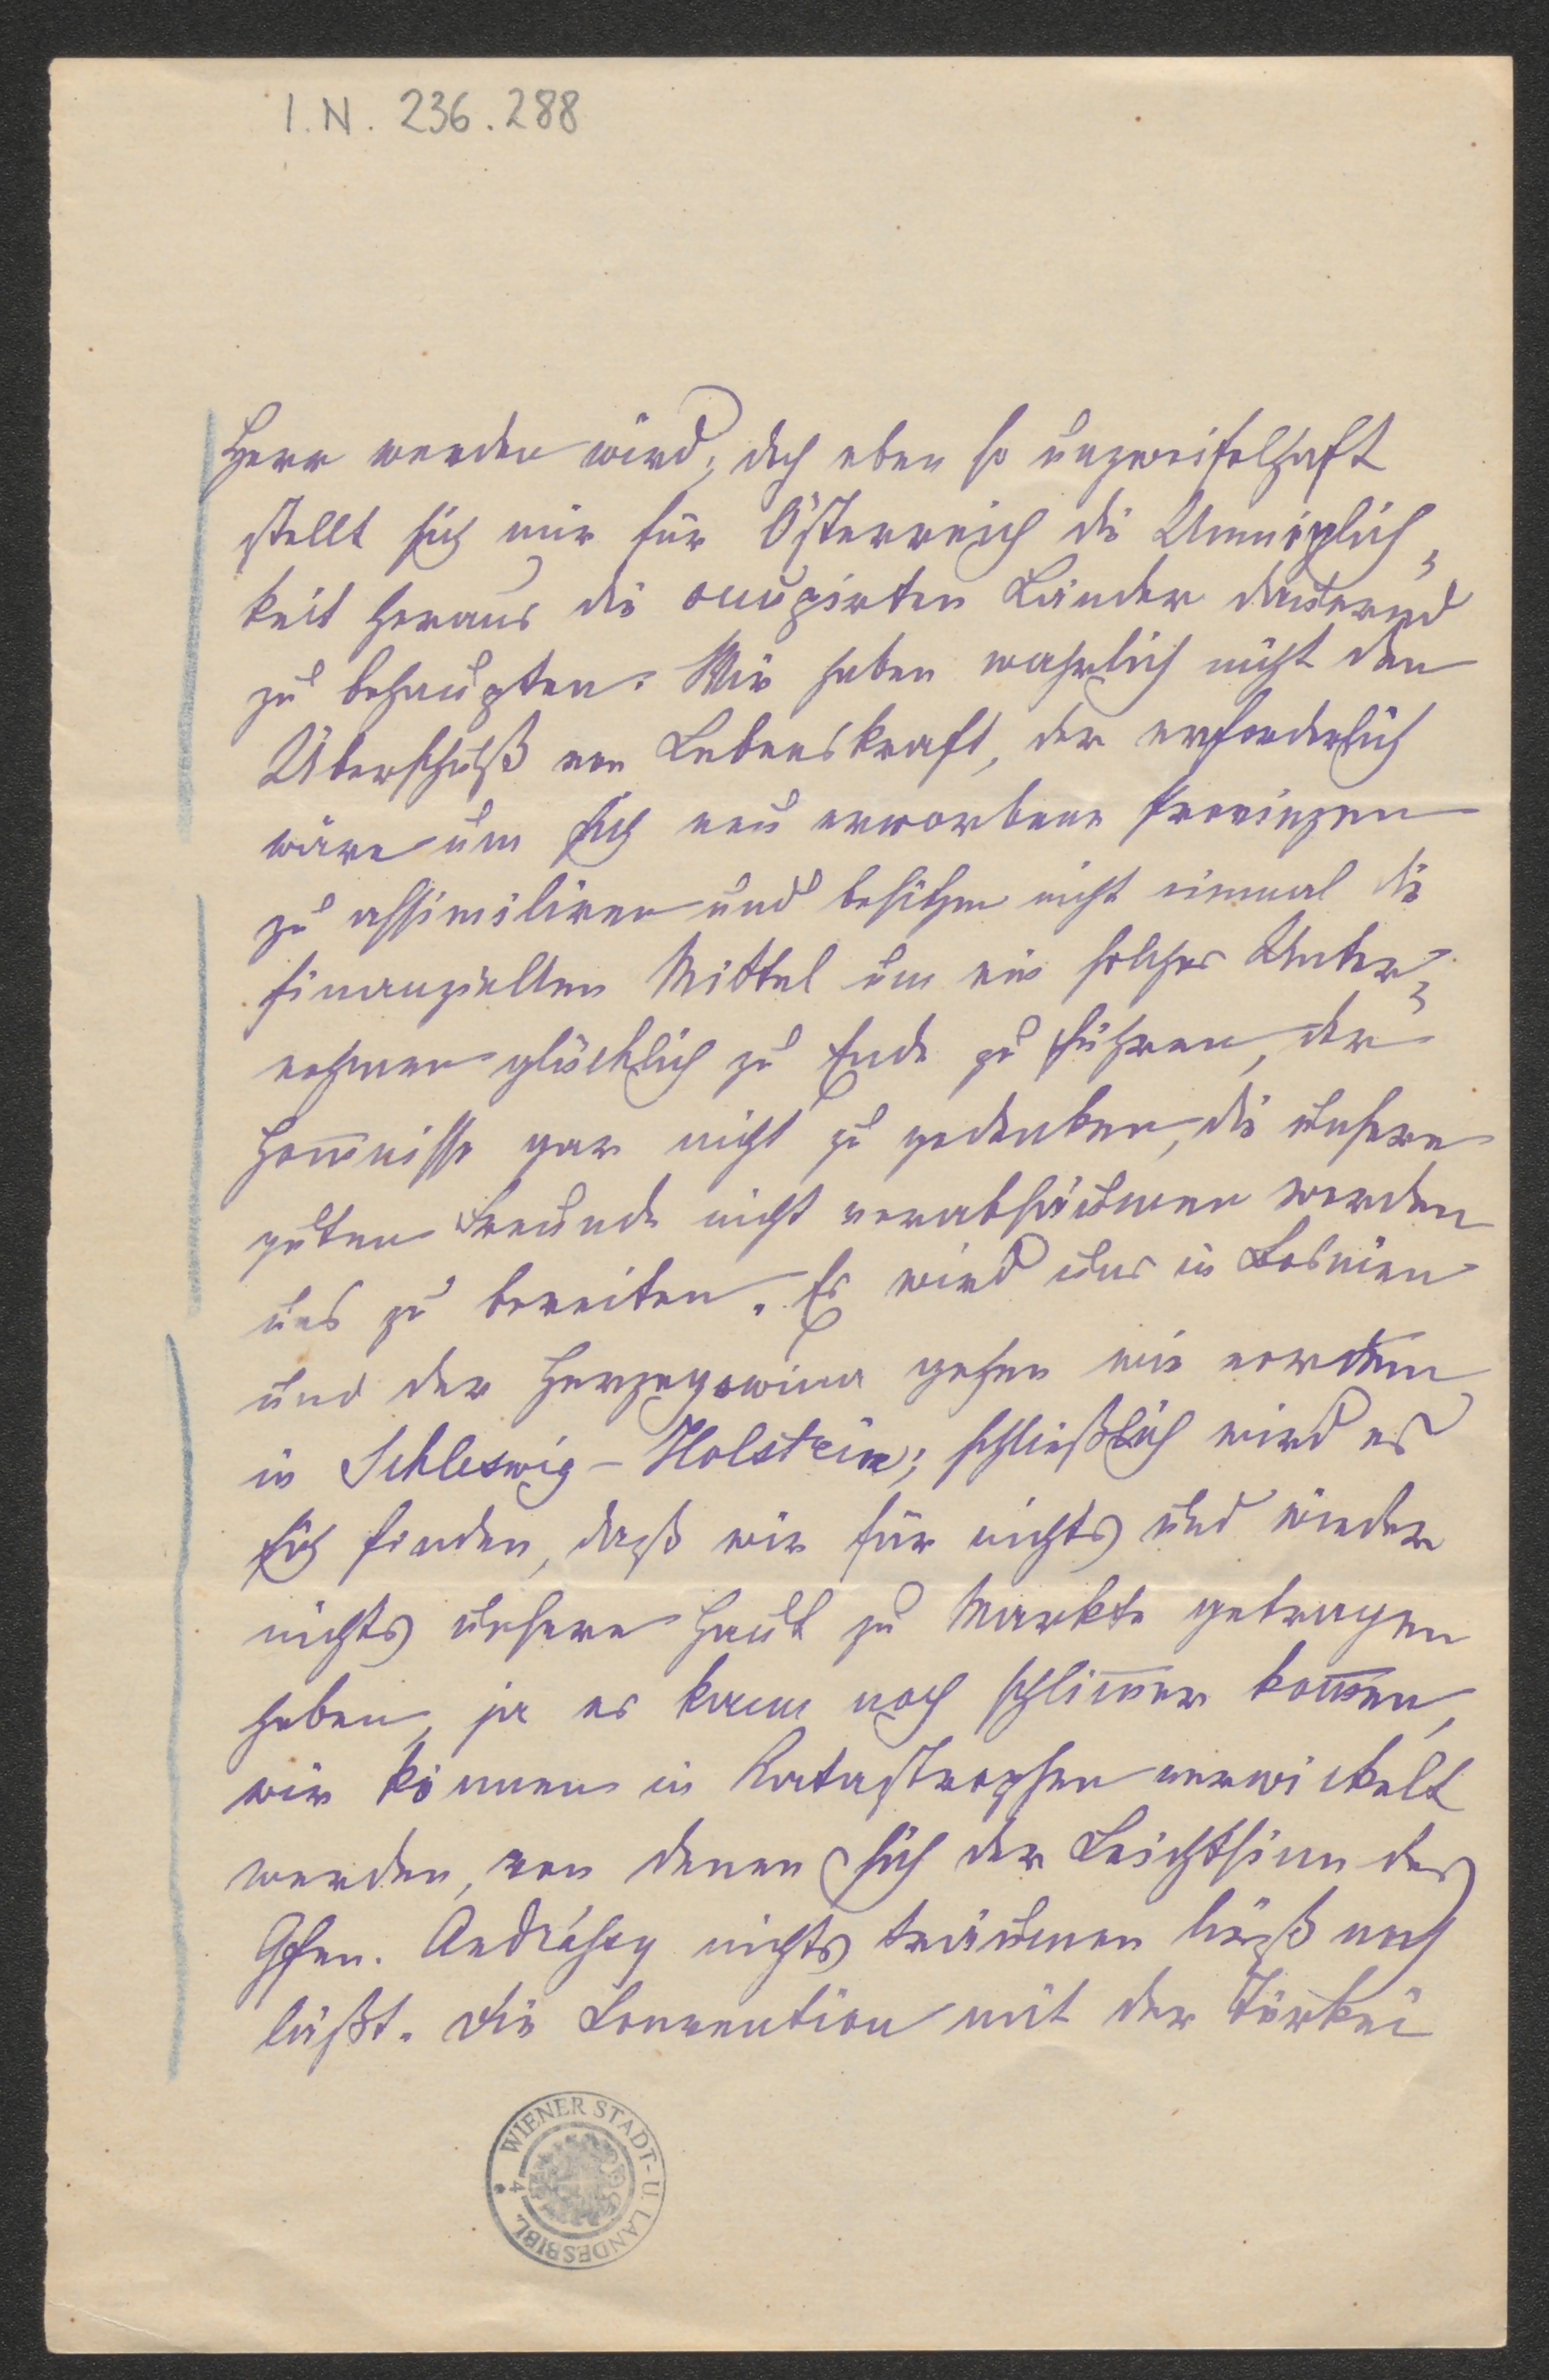 I.N. 236.288
Herr werden wird; doch eben so unzweifelhaft
stellt sich mir für Österreich die Unmöglich-
keit heraus die occupirten Länder dauernd
zu behaupten. Wir haben wahrlich nicht den
Überschuß von Lebenskraft, der erforderlich
wäre um sich neu erworbene Provinzen
zu assimiliren und besitzen nicht einmal die
finanziellen Mittel um ein solches Unter-
nehmen glücklich zu Ende zu führen, der
Hem̄nisse gar nicht zu gedenken, die unsere
guten Freunde nicht verabsäumen werden
uns zu bereiten. Es wird uns in Bosnien
und der Herzegowina gehen wie vordem
in Schleswig-Holstein; schließlich wird es
sich finden, daß wir für nichts und wieder
nichts unsere Haut zu Markte getragen
haben, ja es kann noch schlim̄er kom̄en,
wir können in Katastrophen verwickelt
werden, von denen sich der Leichtsinn des
Gfen. Andrássy nichts träumen ließ noch
läßt. Die Convention mit der Türkei
WIENER STADT- U. LANDESBIBL.